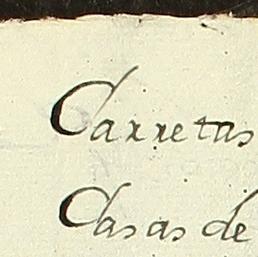 Carretas
Casas de